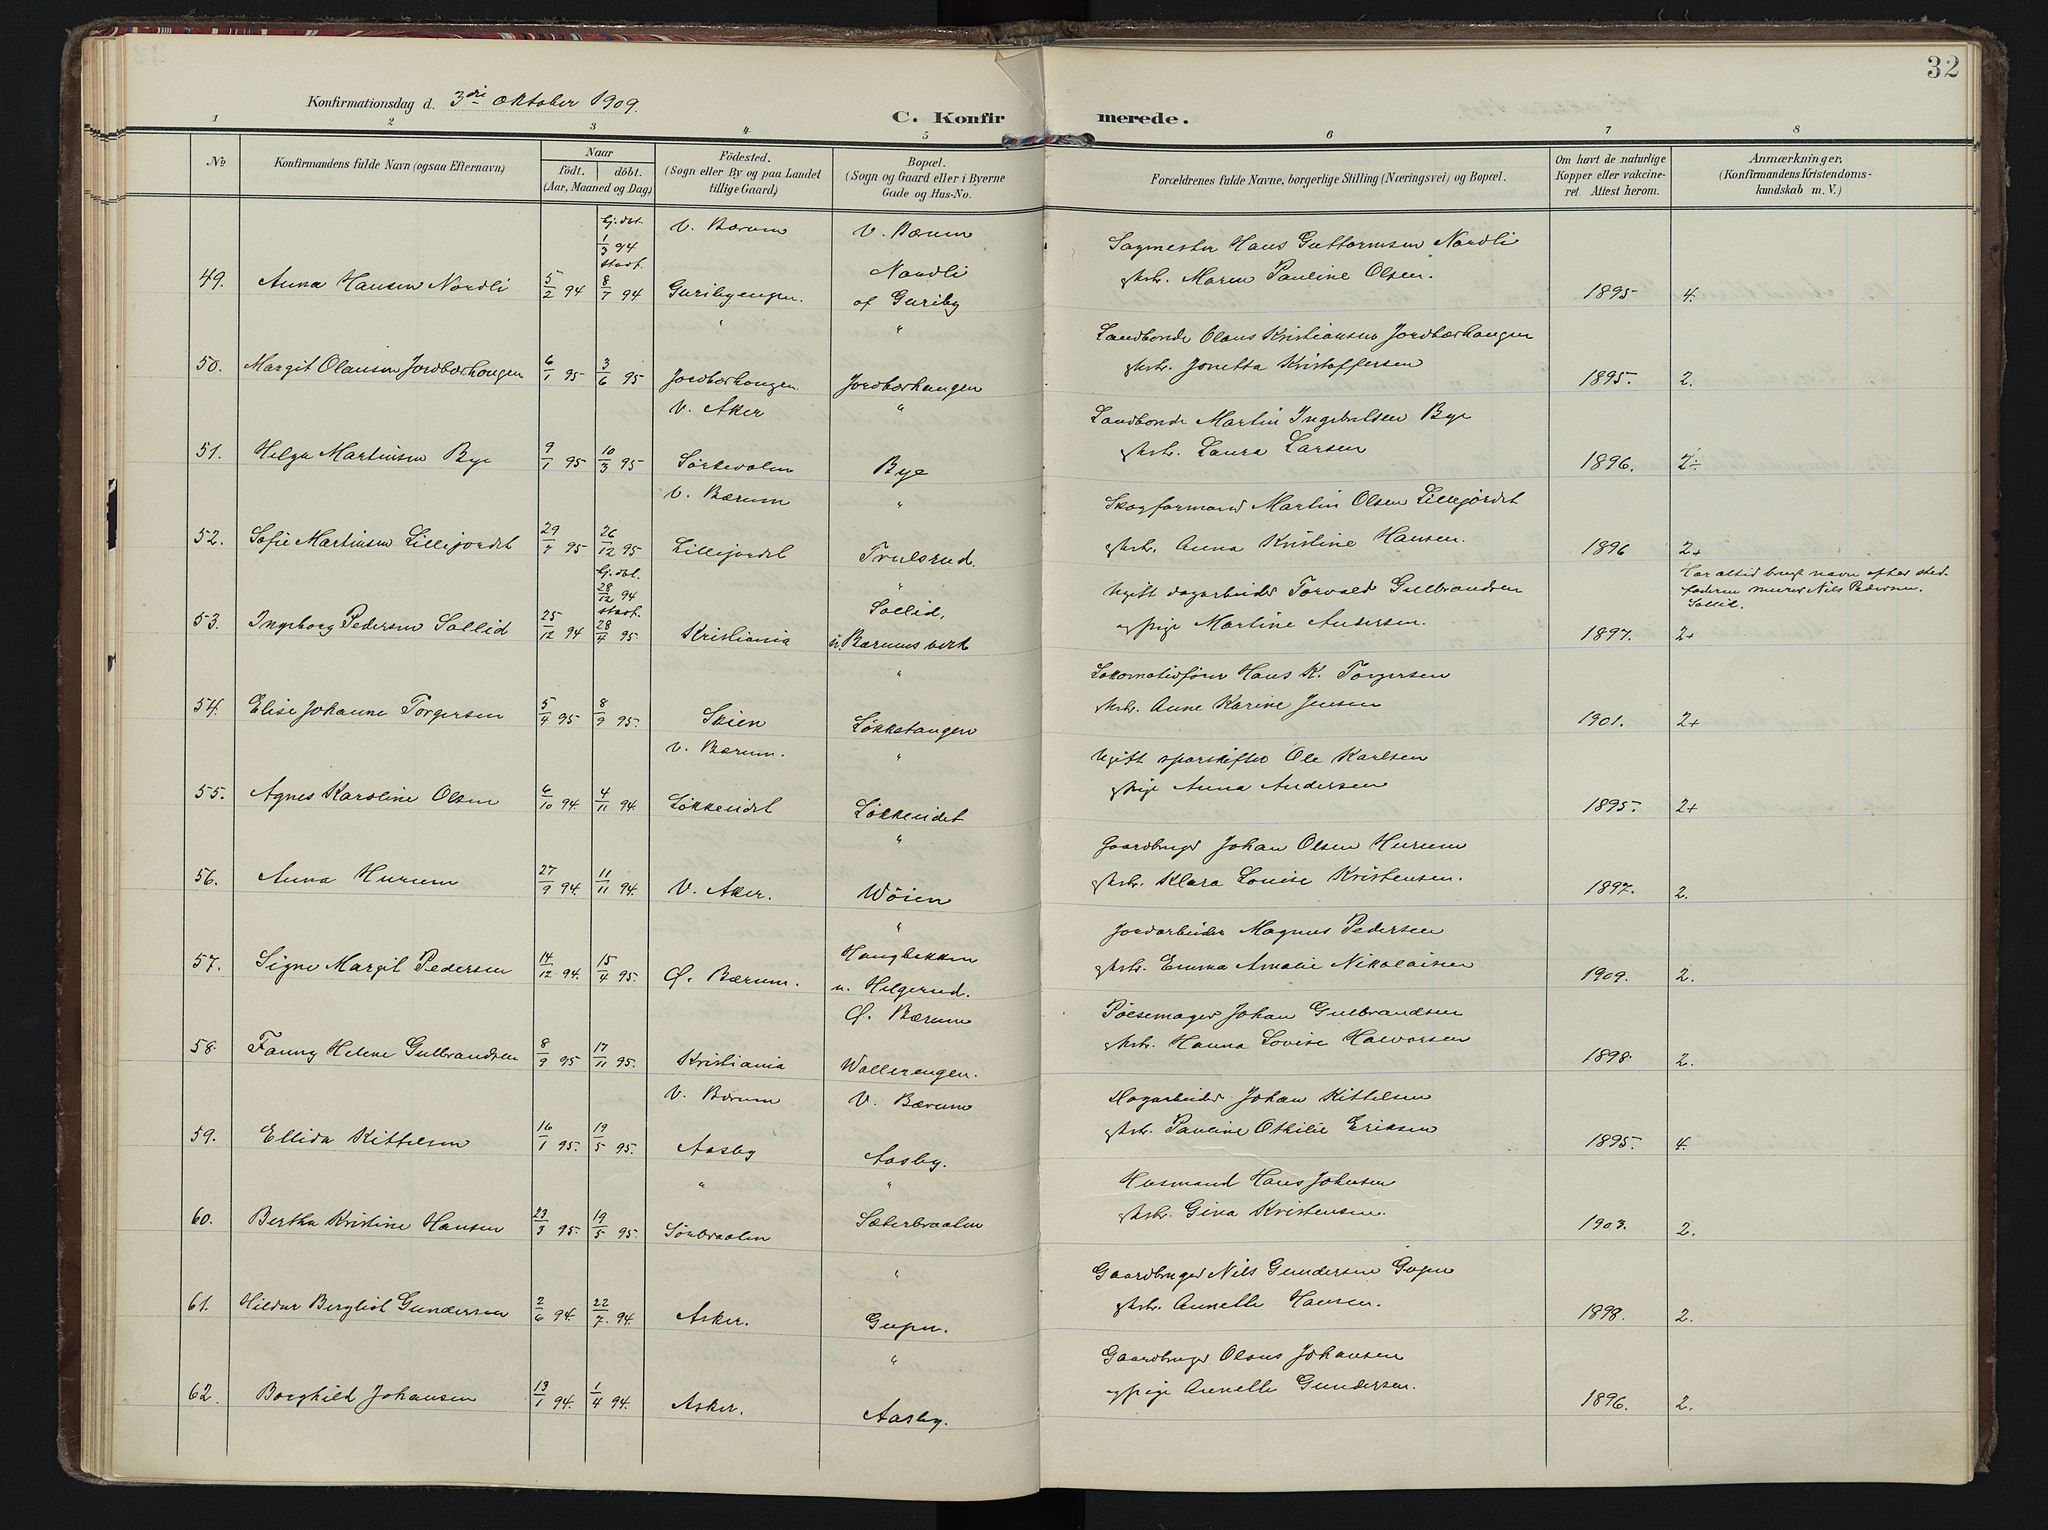 32
Konfirmationsdag d. 3die oktober 1909.
C. Konfirmerede.
1 2 3 4 5 6 7 8
No
Konfirmandens fulde Navn (ogsaa Efternavn)
Naar
födt. döbt.
(Aar, Maaned og Dag)
Födested.
(Sogn eller By og paa Landet
tillige Gaard)
Bopæl.
(Sogn og Gaard eller i Byerne
Gade og Hus-No.
Forældrenes fulde Navne, borgerlige Stilling (Næringsvei) og Bopæl.
Om havt de naturlige
Kopper eller vakcine-
ret. Attest herom.
Anmærkninger,
(Konfirmandens Kristendoms-
kundskab m. V.)
hj. dbt. 1/3 94 stadf. V. Bærum V. Bærum Sagmester Hans Guttormsen Nordli
49. Anna Hansen Nordli 5/2 94 8/7 94 Guribyengen. Nordli af Guriby Maren Pauline Olsen. 1895 4.
" " Landbonde Olaus Kristiansen Jordbærhaugen
50. Margit Olausen Jordbærhaugen 6/1 95 3/6 95 Jordbærhaugen Jordbærhaugen Jonetta Kristoffersen 1895. 2.
V. Aker " Landbonde Martin Ingebretsen Bye
51. Helga Martinsen Bye 9/1 95 10/3 95 Sørkedalen Bye Laura Larsen 1896. 2÷
V. Bærum " Skogformand Martin Olsen Lillejordet
52. Sofie Martinsen Lillejordet 29/7 95 26/12 95 Lillejordet Trulsrud. Anna Kristine Hansen. 1896 2+
hj. dbt. 28/12 94 stadf. " Ugift dagarbeider Torvald Gulbrandsen Har altid brugt navn efter sted-
faderen murer Nils Pedersen,
Sollid.
53. Ingeborg Pedersen Sollid 25/12 94 28/4 95 Kristiania Sollid, u. Bærums verk og pige Martine Andersen. 1897. 2+
" Lokomotivfører Hans K. Torgersen
54. Elise Johanne Torgersen 5/4 95 8/9 95 Skien Løkketangen Anne Karine Jensen 1901. 2+
V. Bærum. " Ugift sporskifter Ole Karlsen
55. Agnes Karoline Olsen 6/10 94 4/11 94 Løkkeridet Løkkeridet pige Anna Andersen 1895. 2+
" Gaardbruger Johan Olsen Hurum
56. Anna Hurum 27/9 94. 11/11 94. V. Aker. Wøien Klara Lovise Kristensen. 1897. 2.
" Jordarbeider Magnus Pedersen
57. Signe Margit Pedersen 14/12 94. 15/4 95. Ø. Bærum. Haugbakken u. Helgerud. Emma Amalie Nikolaisen 1909. 2.
Ø. Bærum Pølsemager Johan Gulbrandsen
58. Fanny Helene Gulbrandsen 8/9 95 17/11 95. Kristiania Wallerengen. Hanna Lovise Halvorsen 1898. 2.
V. Bærum V. Bærum Dagarbeider Johan Kittelsen
59. Ellida Kittelsen 16/1 95. 19/5 95. Aasby Aasby. Pauline Othilie Eriksen 1895. 4.
" " Husmand Hans Johnsen
60. Bertha Kristine Hansen 23/3 95. 19/5 95. Sørbraaten Sæterbraaten Gina Kristensen. 1903. 2.
" Gaardbruger Nils Gundersen Gupu
61. Hildur Bergliot Gundersen 2/6 94. 22/7. 94. Asker. Gupu. Annette Hansen. 1898. 2.
" Gaardbruger Olaus Johansen
62. Borghild Johansen 13/1 94. 1/4 94. Asker. Aasby. og pige Annette Gundersen. 1896. 2.